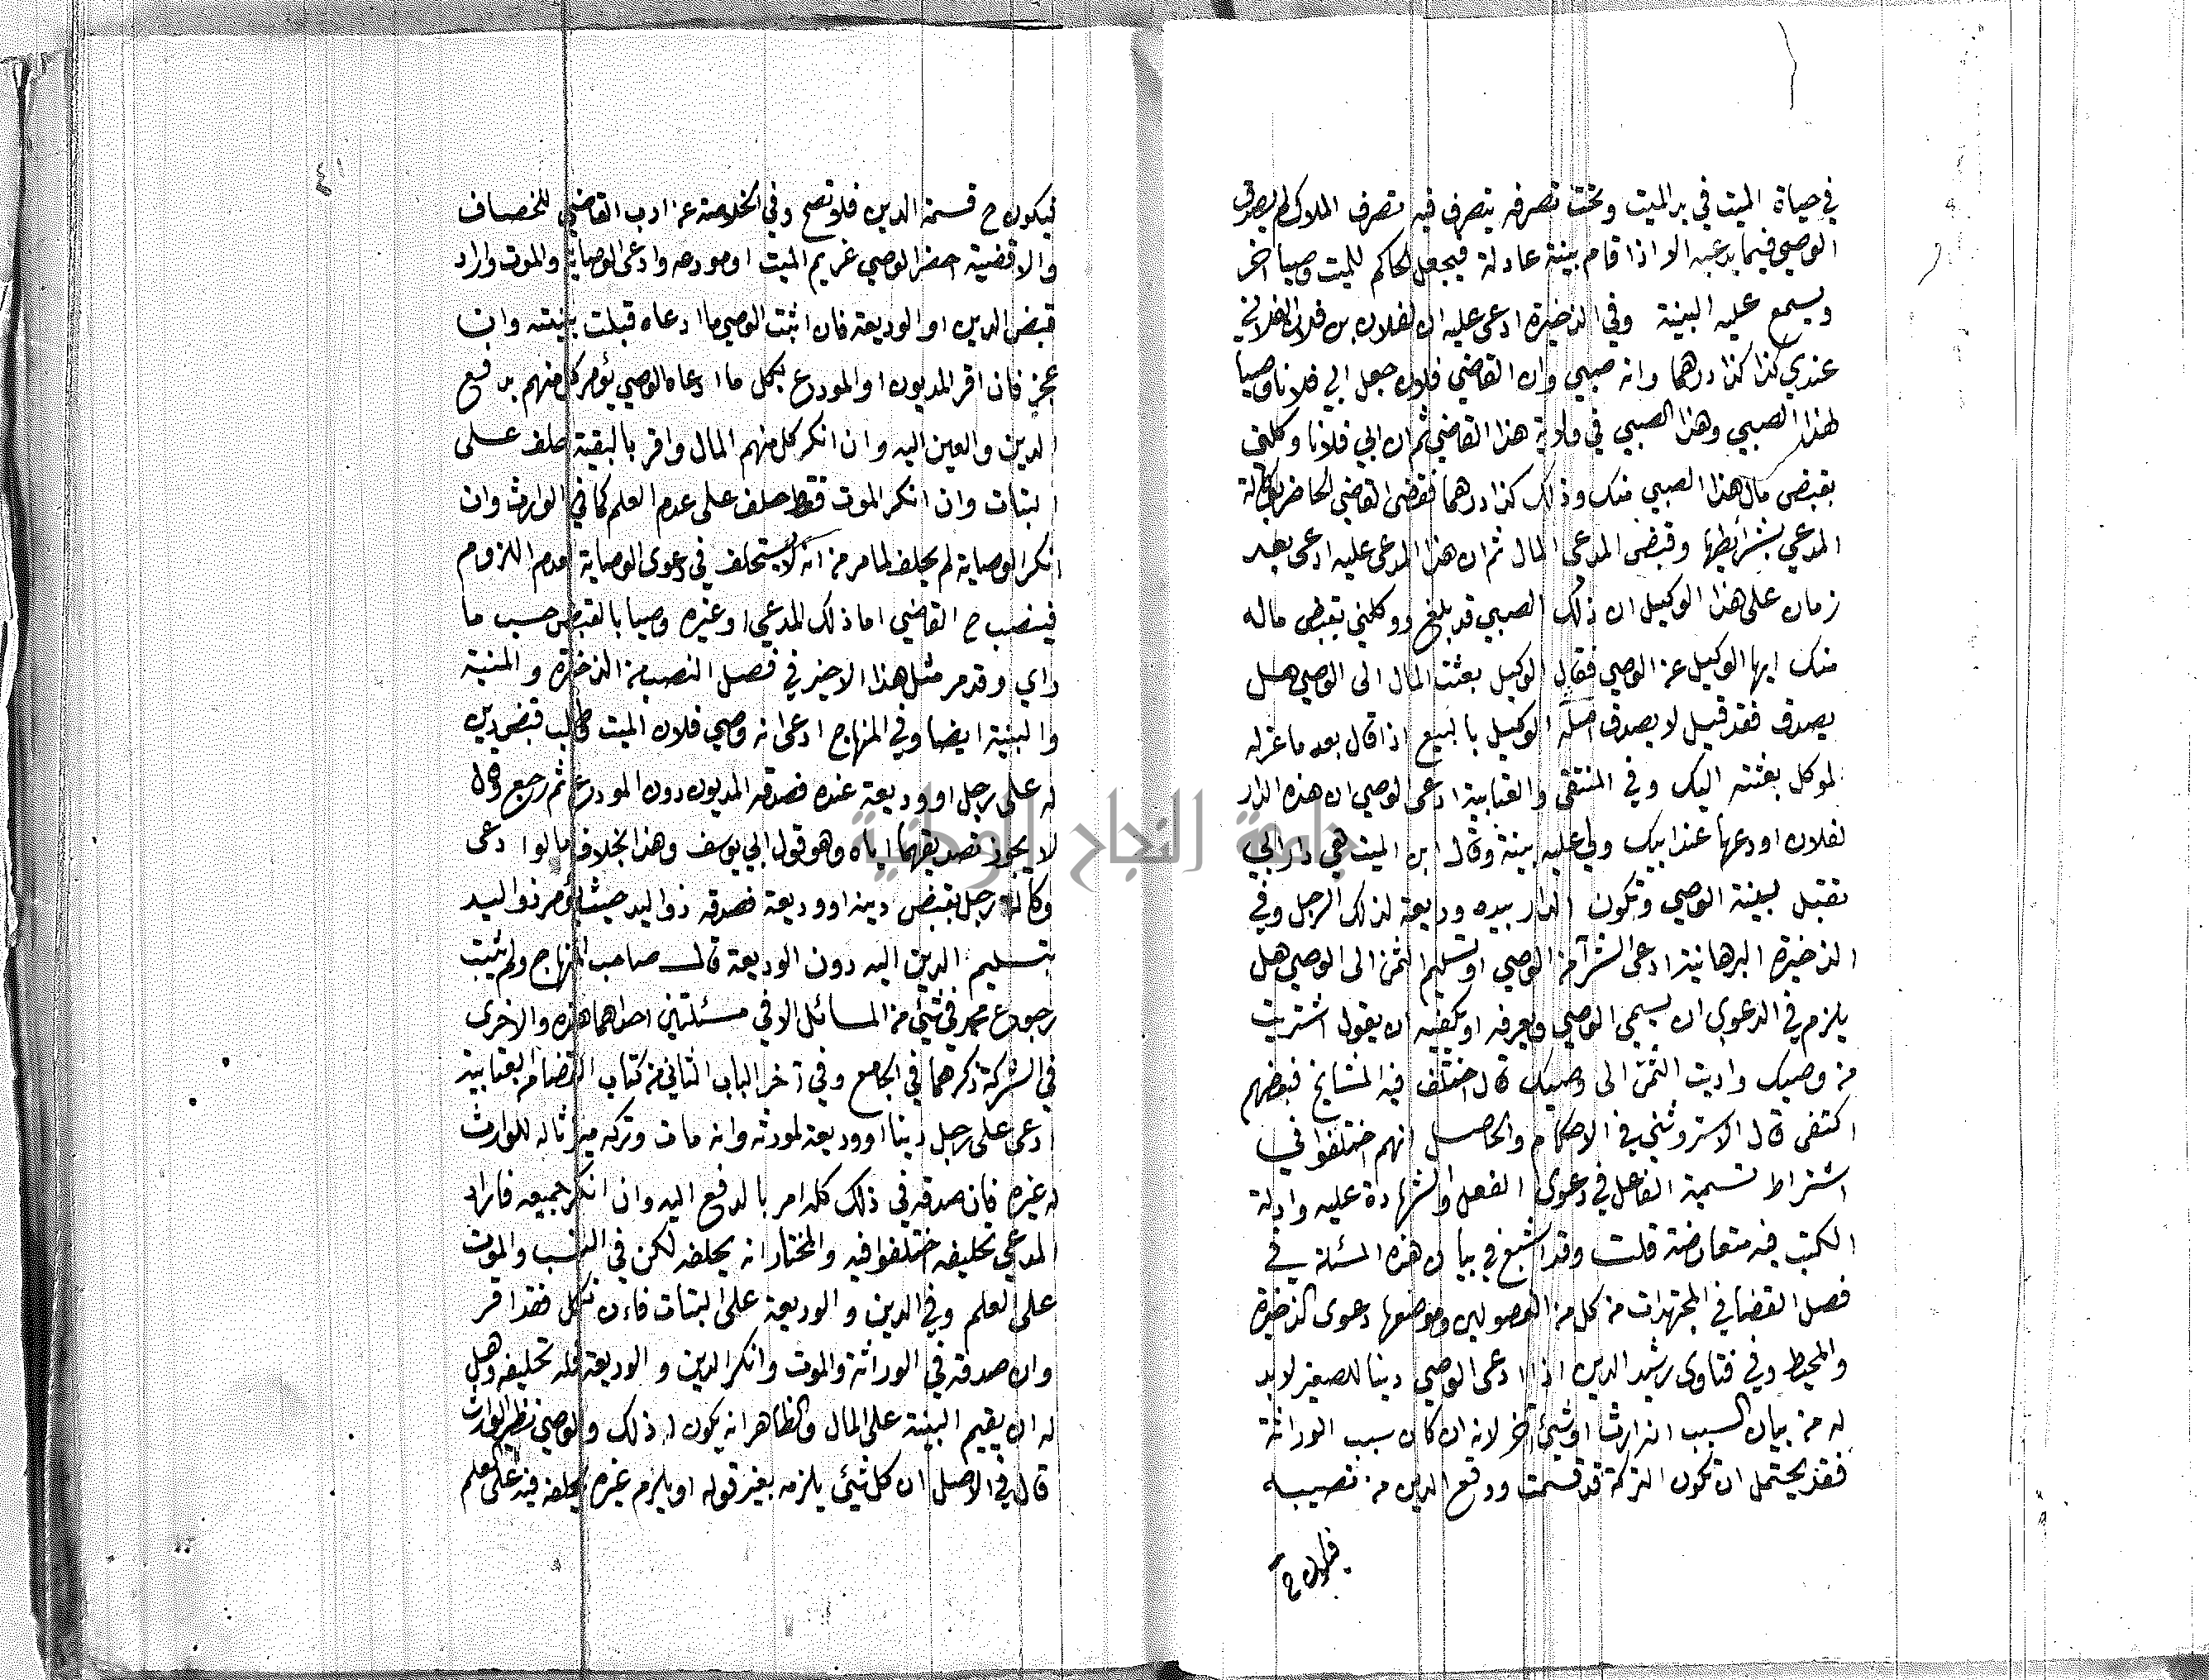 في حياة الميت في يد الميت وتحت تصرفه يتصرف فيه تصرف الملاك لم يصدق
الوصي فيما يدعيه الا اذا قام بينة عادلة فيجعل الحاكم للميت وصيا اخر
ويسمع عليه البينة وفي الذخيرة ادعى عليه ان لفلان بن فلان الفلاني
عندي كذا كذا درهما وانه صبي وان القاضي فلان جعل ابي فلانا وصيا
لهذا الصبي وهذا الصبي في ولاية هذا القاضي ثم ان ابي فلانا وكلني
بقبض مال هذا الصبي منك وذلك كذا درهما فقضى القاضي الحاضر بوكالة
المدعي بشرائطها وقبض المدعي المال ثم ان هذا المدعى عليه ادعى بعد
زمان على هذا الوكيل ان ذلك الصبي قد بلغ ووكلني بقبض ماله
منك ايها الوكيل عن الوصي فقال الوكيل بعثت المال الى الوصي هل
يصدق فقد قيل لا يصدق اصله الوكيل بالبيع اذا قال بعد ما عزله
الموكل بعثته اليك وفي المنتقى والعتابية ادعى الوصي ان هذه الدار
لفلان اودعها عند ابيك ولي عليه بينة وقال ابن الميت هي دار ابي
تقبل بينة الوصي وتكون الدار بيده وديعة لذلك الرجل وفي
الذخيرة البرهانية ادعى الشرآ من الوصي او تسليم الثمن الى الوصي هل
يلزم في الدعوى ان يسمي الوصي ويعرفه او يكفيه ان يقول اشتريت
من وصيك واديت الثمن الى وصيك قال اختلف فيه المشايخ فبعضهم
اكتفى قال الاستروشني في الاحكام والحاصل انهم اختلفوا في
اشتراط تسمية الفاعل في دعوى الفعل والشهادة عليه وادلة
الكتب فيه متعارضة قلت وقد اشبع في بيان هذه المسئلة في
فصل القضا في المجتهدات من كل من الفصولين وموضعها دعوى الذخيرة
والمحيط وفي فتاوى رشيد الدين اذا ادعى الوصي دينا للصغير لا بد
له من بيان السبب انه ارث او شئ اخر لانه ان كان سبب الوراثة
فقد يحتمل ان تكون التركة قد قسمت ووقع الدين من نصيبه
فيكون ح
٤١
فيكون ح قسمة الدين فلا تصح وفي الخلاصة عن ادب القاضي للخصاف
والاقضية احضر الوصي غريم الميت او مودعه وادعى الوصاية والموت واراد
قبض الدين او الوديعة فان اثبت الوصي ما ادعاه قبلت بينته وان
عجز فان اقر المديون او المودع بكل ما ادعاه الوصي يؤمر كل منهم بدفع
الدين والعين اليه وان انكر كل منهم المال واقر بالبقية حلف على
البتات وان انكر الموت فقط حلف على عدم العلم كما في الوارث وان
انكر الوصاية لم يحلف لما مر من انه لا يستحلف في دعوى الوصاية لعدم اللزوم
فينصب ح القاضي اما ذلك المدعي او غيره وصيا بالقبض حسب ما
راي وقد مر مثل هذا الاخير في فصل النصب من الذخيرة والمنية
والبغية ايضا وفي المنهاج ادعى انه وصي فلان الميت وطلب قبض دين
له على رجل او وديعة عنده فصدقه المديون دون المودع ثم رجع وقال
لا يجوز تصديقهما اياه وهو قول ابي يوسف وهذا بخلاف ما لو ادعى
وكالة رجل بقبض دينه او وديعة فصدقه ذو اليد حيث يؤمر ذو اليد
بتسليم الدين اليه دون الوديعة قال صاحب المنهاج ولم يثبت
رجوع محمد في شئ من المسائل الا في مسئلتين احداهما هذه والاخرى
في الشركة ذكرهما في الجامع وفي آخر الباب الثاني من كتاب القضا من العتابية
ادعى على رجل دينا او وديعة لمورثه وانه مات وتركه ميراثا له للوارث
له غيره فان صدقه في ذلك كله امر بالدفع اليه وان انكر جميعه فاراد
المدعي تحليفه اختلفوا فيه والمختار انه يحلفه لكن في النسب والموت
على العلم وفي الدين والوديعة على البتات فاءن نكل فقد اقر
وان صدقه في الوراثة والموت وانكر الدين والوديعة فله تحليفه وهل
له ان يقيم البينة على المال والظاهر انه يكون له ذلك والوصي نظير الوارث
قال في الاصل ان كل شئ يلزمه بغير قوله او يلزم غيره يحلفه فيه على العلم
جامعة النجاح الوطنية